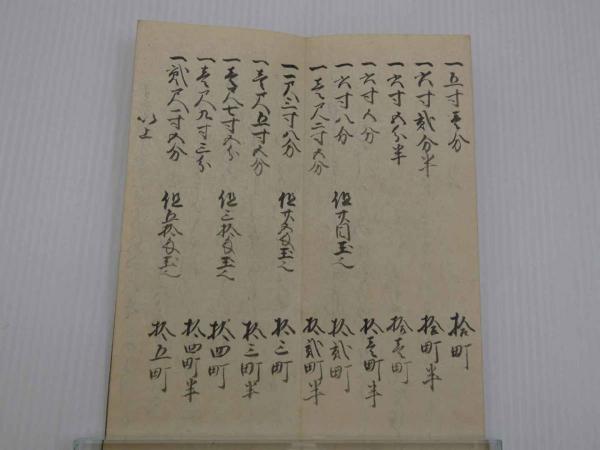 一五寸壱分　拾町
一六寸弐分半　拾町半
一六寸五分半　拾壱町
一六寸分　拾壱町半
一六寸八分　但廿目玉也　拾弐町
一壱尺二寸五分　拾弐町半
一一尺三寸八分　但廿五匁玉也　拾三町
一壱尺五寸五分　拾三町半
一壱尺七寸五分　但三拾匁玉也　拾四町
一壱尺九寸三分　拾四町半
一弐尺一寸五分　但五拾匁玉也　拾五町
以上